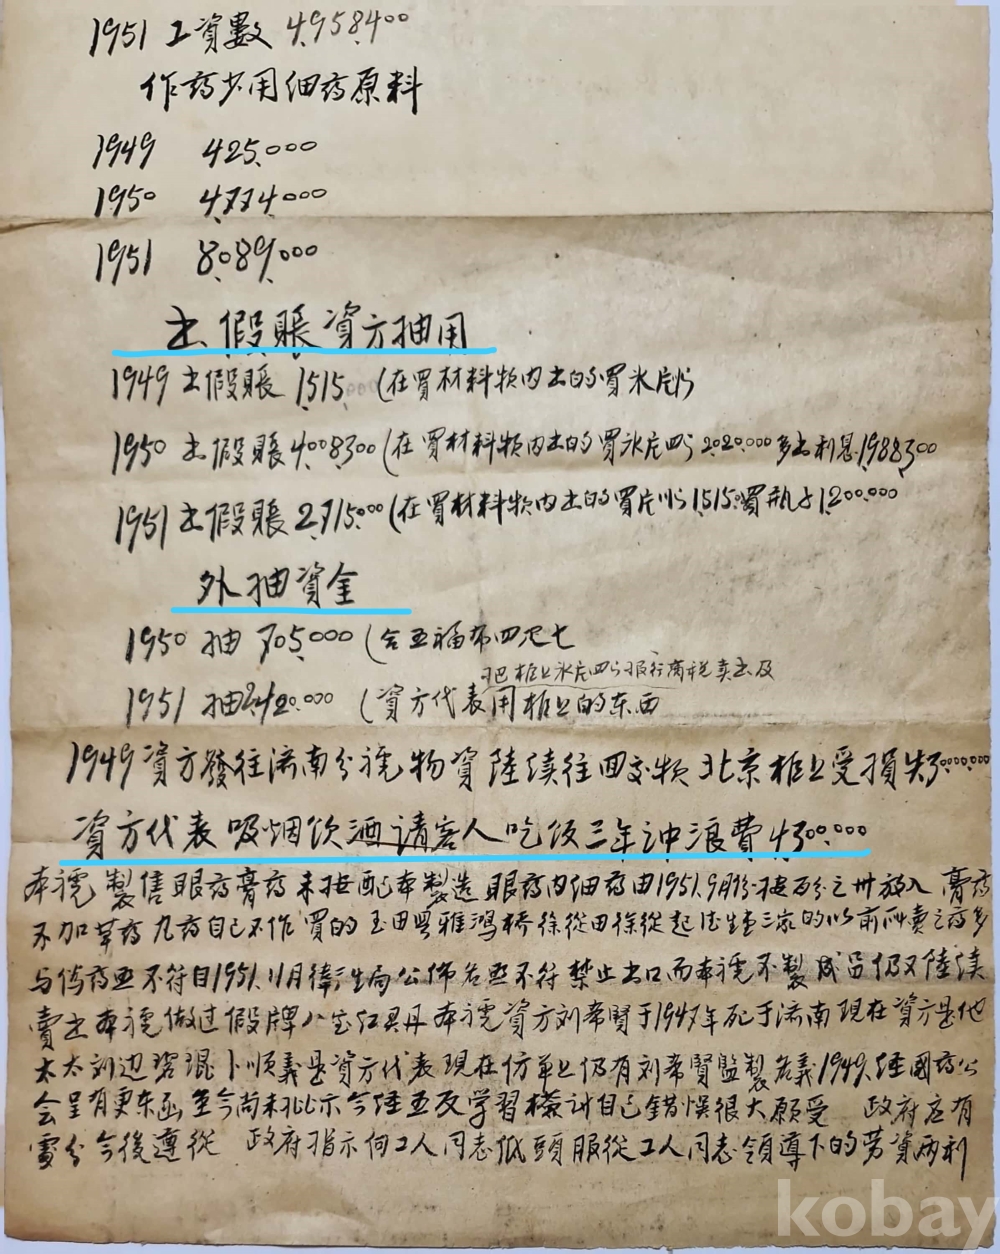 1951 工資數 4,958,400
作药少用细药原料
1949 425,000
1950 4,774,000
1951 8,089,000
出假賬資方抽用
1949 出假賬 1,515 (在買材料账内出的買氷片
1950 出假賬 4,008,300 (在買材料账内出的買氷片四 2,020,000 多出利息 1,988,300
1951 出假賬 2,715,000 (在買材料账内出的買片 1,515 買瓶子 1,200,000
外抽資金
1950 抽 705,000 (合五福布四疋七
把柜上氷片四 卖出及
1951 抽 2,420,000 (資方代表用柜上的东西
1949 資方發往济南分號物資陸续往回 北京柜上受損失
資方代表吸烟饮酒請客人吃饭三年沖浪費 4,300,000
本號製售眼药膏药未按配本製造眼药内细药由1951.9月 按百分之卅放入膏药
不加草药丸药自己不作買的玉田 雅鸿桥徐從田徐從起 生 三家的以前所賣之药多
与 药 不符自1951.11月衛生局公佈名 不符禁止出口而本號不製成 仍又陸续
賣出本號做过假牌八宝红灵丹本號資方刘希賢于1947年死于济南現在資方是他
太太刘边碧琨卜順義是資方代表現在仿单上仍有刘希賢監製名義1949.经國药公
会呈有更东函至今尚未批示今经五反学習檢讨自己錯悞很大願受 政府应有
處分今後遵從 政府指示向工人同志低頭服從工人同志領導下的劳資两利
kobay